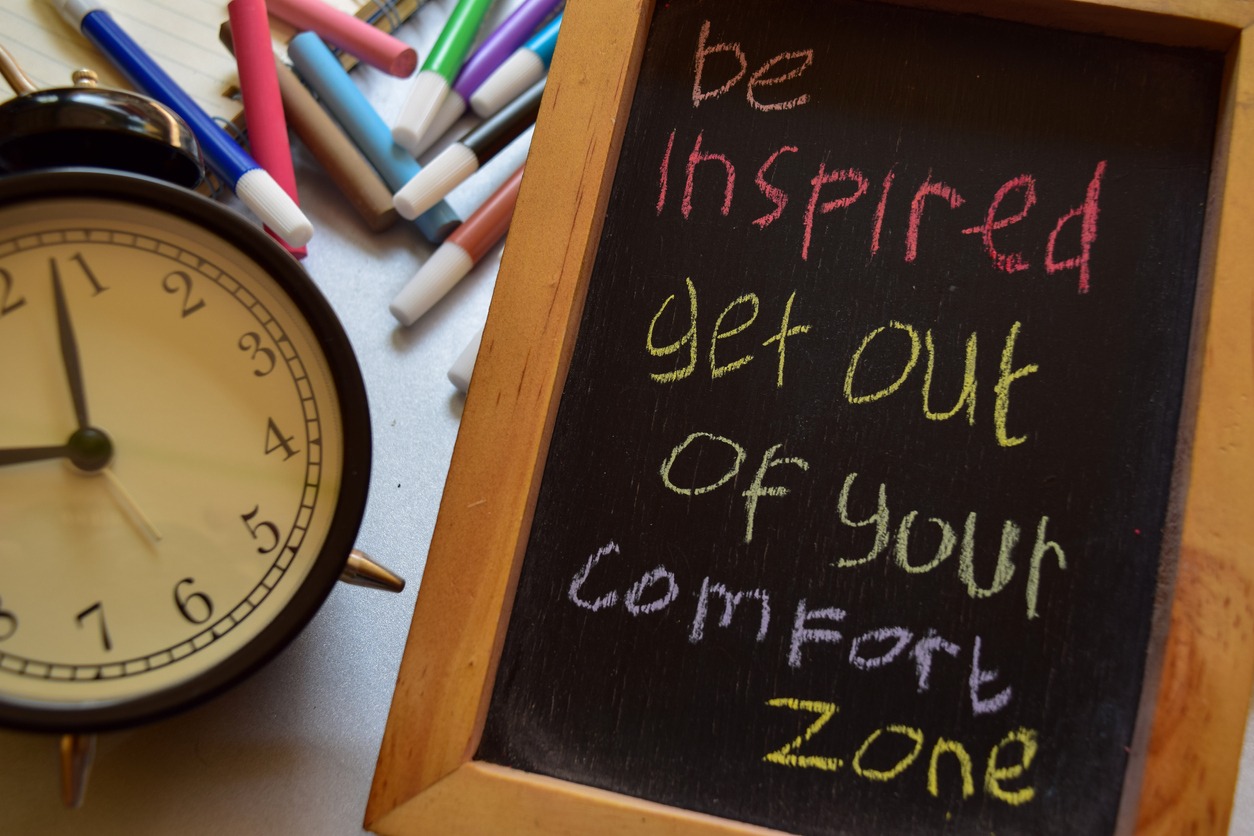 be
Inspired
get out
of your
comfort
zone
2
1
2
3
4
5
6
7
8